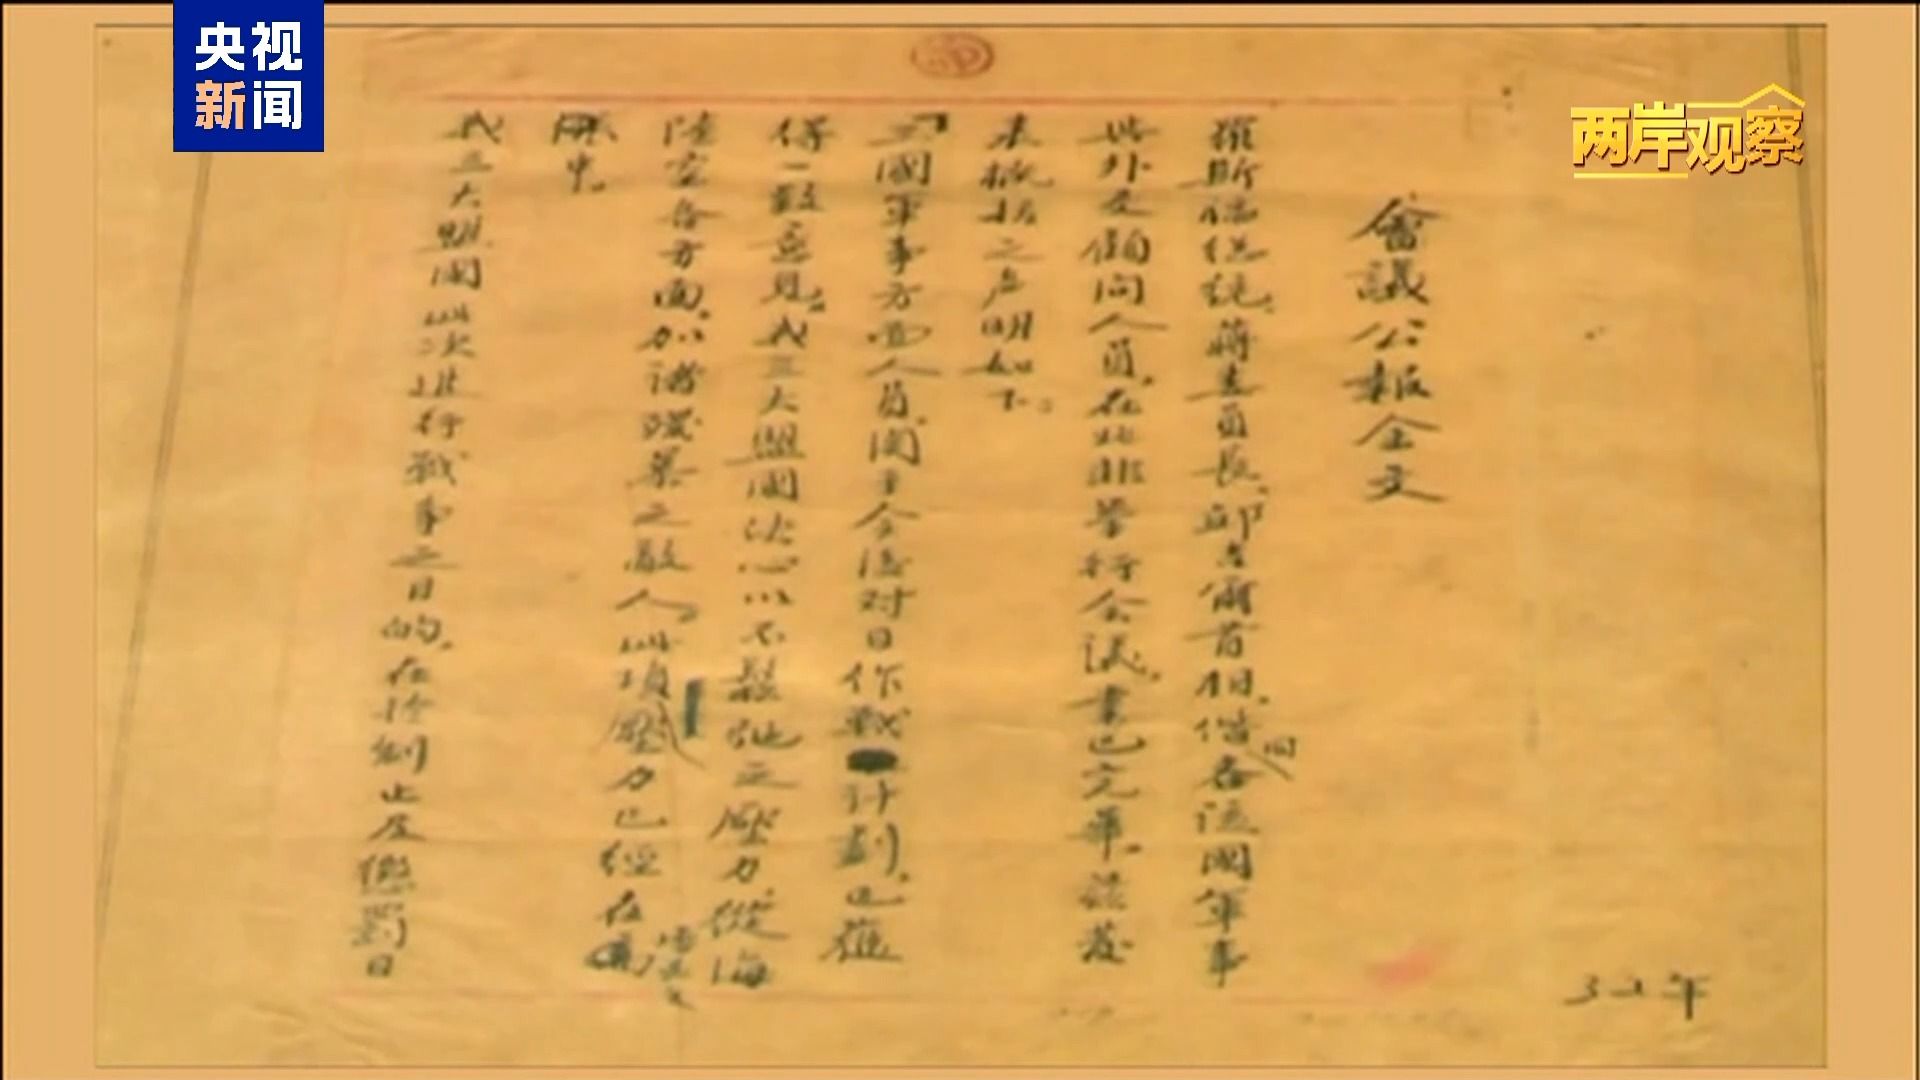 央视
新闻
两岸观察
會議公報全文
羅斯福總統、蔣委員長、邱吉爾首相、偕同各该國軍事
與外交顧問人員，在北非舉行会议，業已完畢。茲發
表概括之声明如下：
「三國軍事方面人員，関于今後对日作戰計劃，已獲
得一致意見，我三大盟国決心以不鬆弛之壓力，從海
陸空各方面，加諸殘暴之敵人，此項壓力已經在增長之
中。
我三大盟国此次進行戰争之目的，在於制止及懲罰日
32年